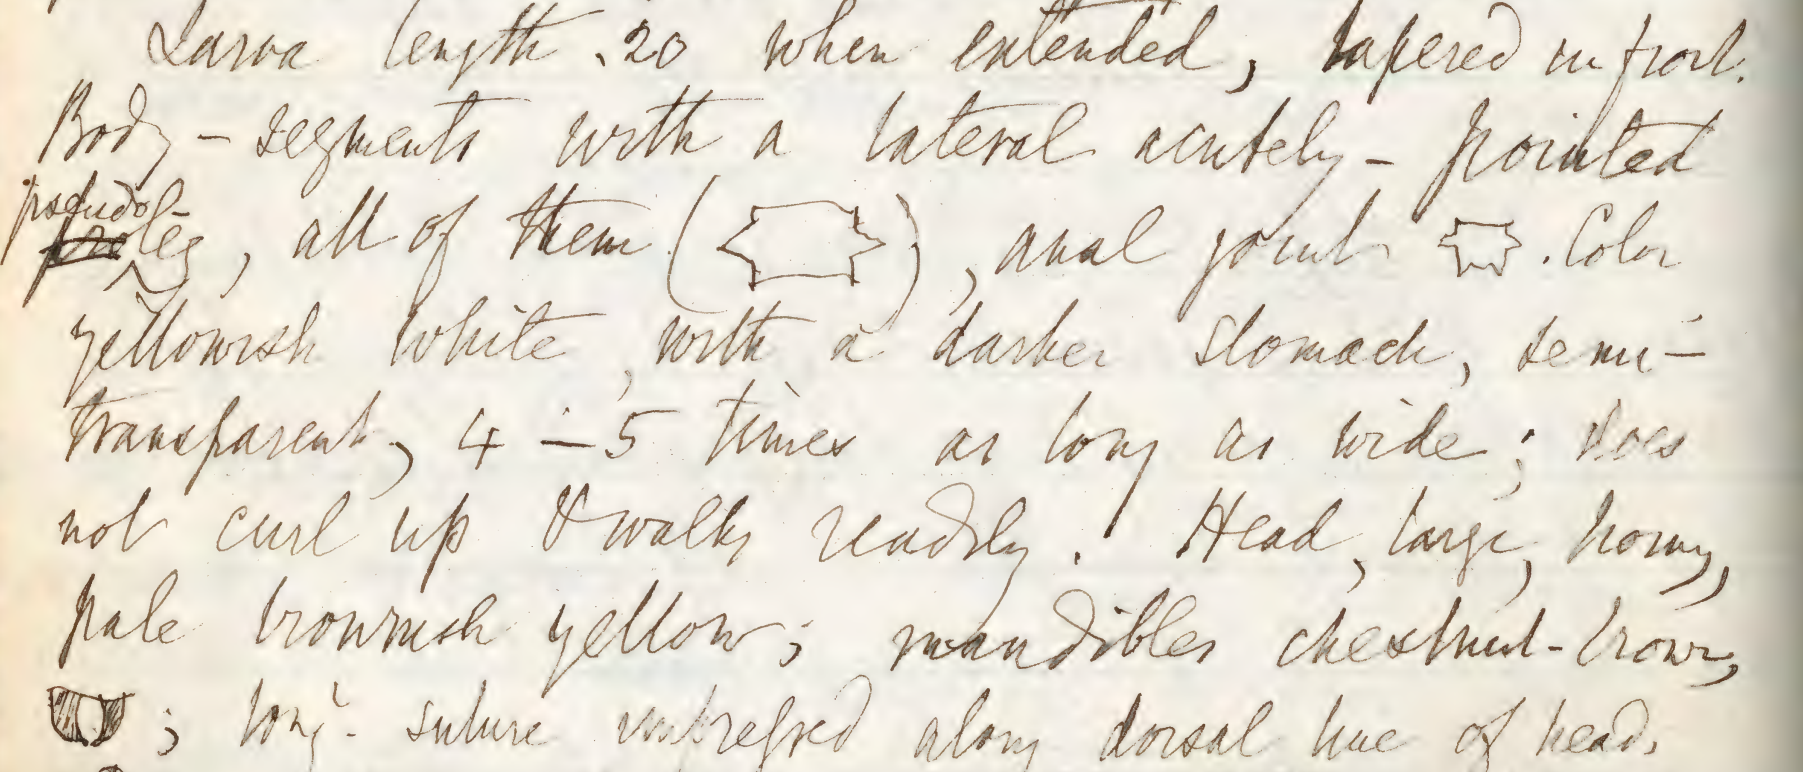 Larva length .20 when extended, tapered in front.
Body-segments with a lateral acutely-pointed
pseudol-
proleg, all of them ( ), anal joint . Color
yellowish white, with a darker stomach, semi-
transparent, 4-5 times as long as wide; does
not curl up & walks readily. Head, large, horny,
pale brownish yellow; mandibles chestnut-brown,
; long. suture impressed along dorsal line of head.